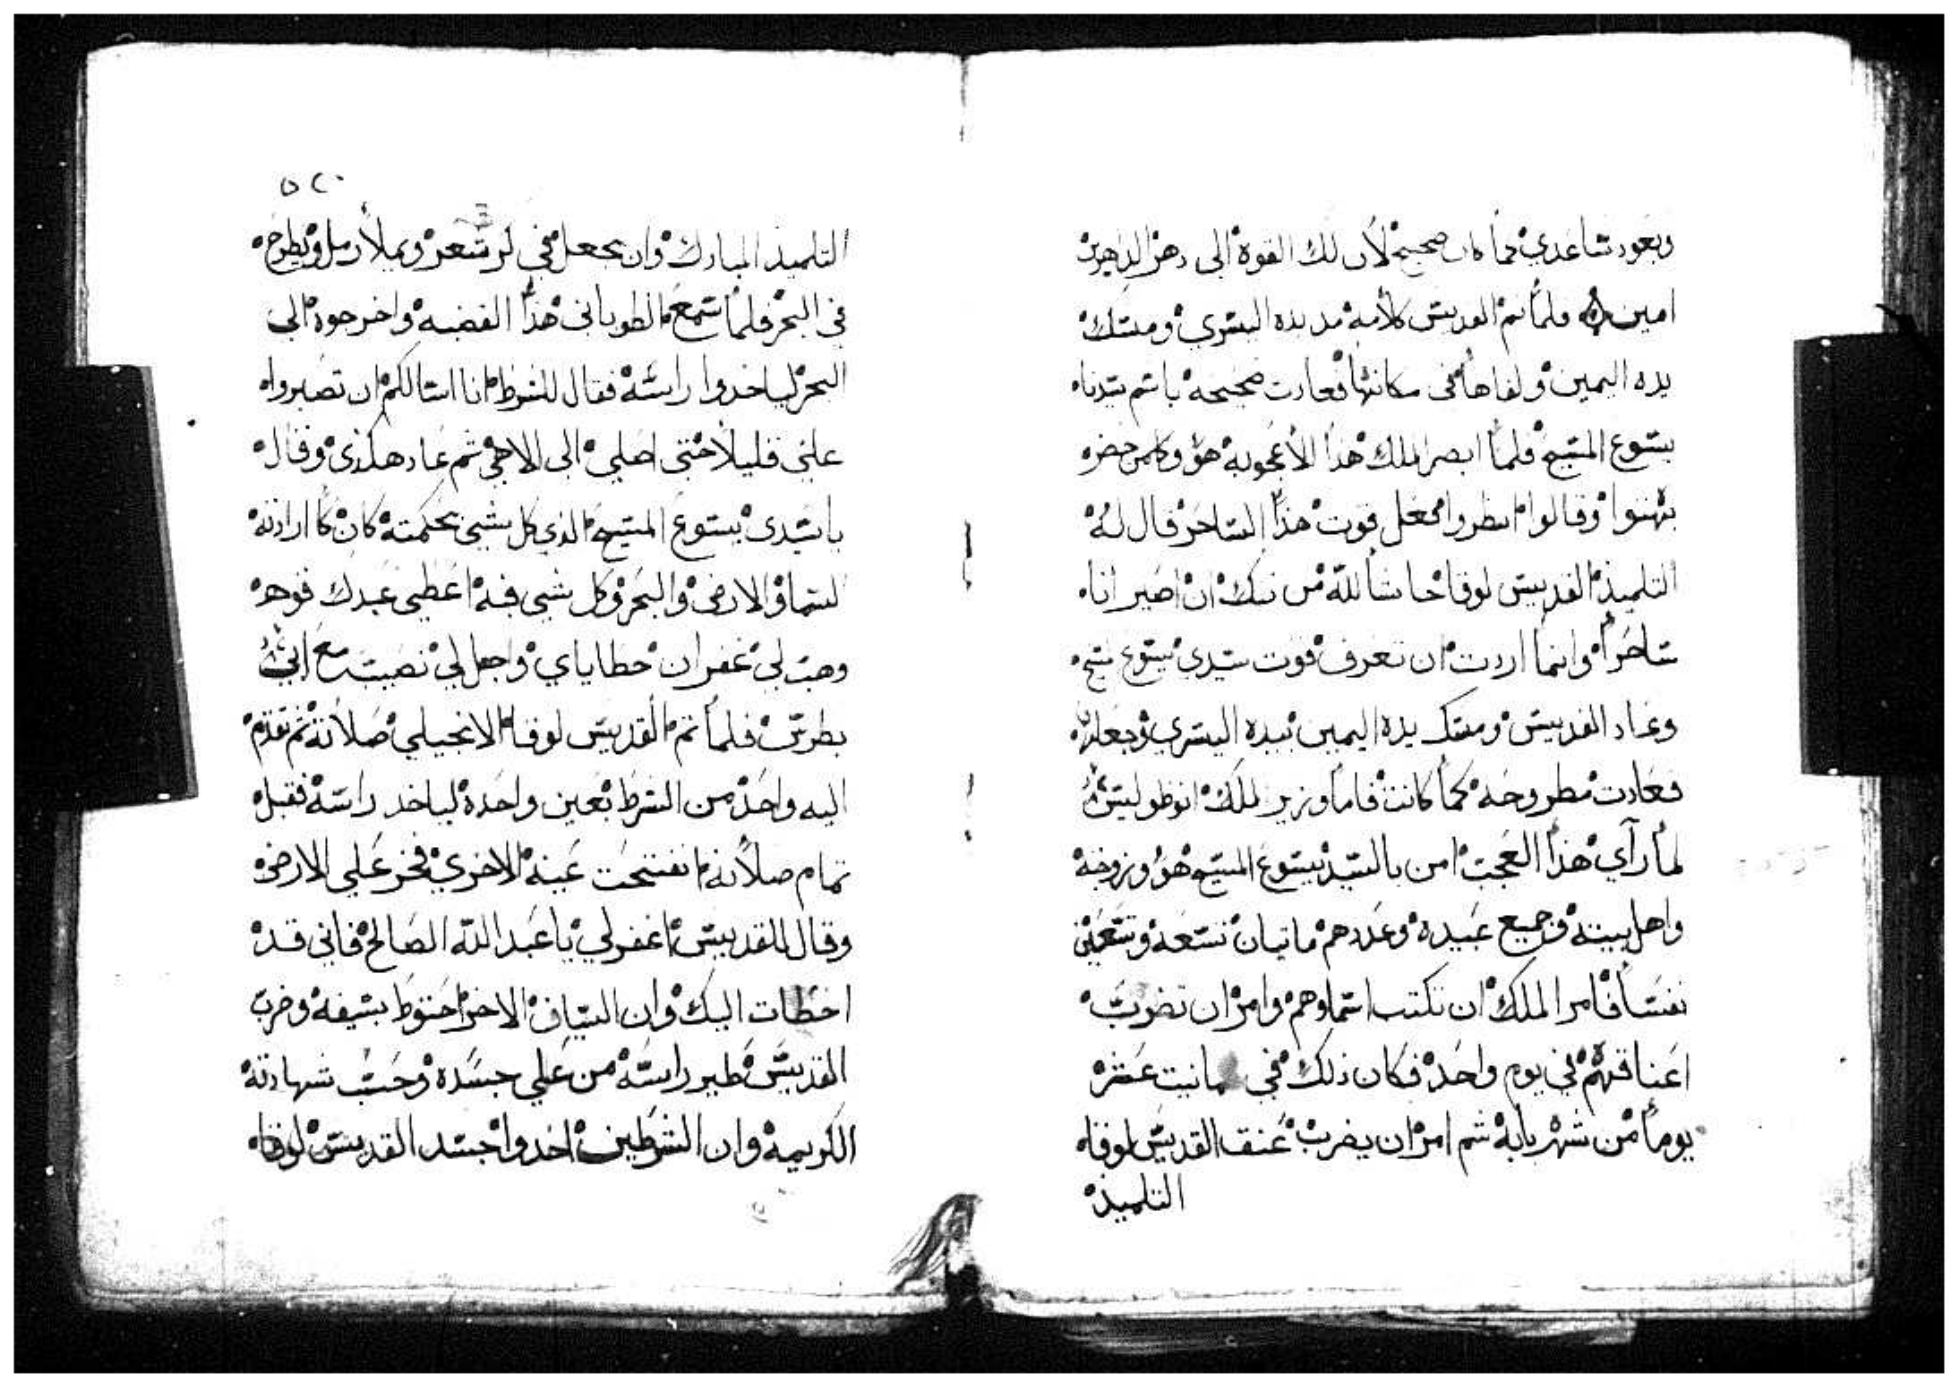 ويعود ساعدي كما كان صحيح لان لك القوة الى دهر الداهرين
امين فلما تم القديس كلامه مد يده اليسري ومسك
يده اليمين ولقاها في مكانها فعادت صحيحه باسم سيدنا
يسوع المسيح فلما ابصر الملك هذا الاعجوبه هو وكلمن حضره
بهتوا وقالوا انظروا فعل قوت هذا الساحر قال له
التلميذ القديس لوقا حاشا لله من ذلك ان اصير انا
ساحرا وانما اردت ان تعرف قوت سيدي يسوع المسيح
وعاد القديس ومسك يده اليمين بيده اليسري وجعلها
فعادت مطروحه كما كانت فاما وزير الملك انوطوليس
لما رآي هذا العجب امن بالسيد يسوع المسيح هو وزوجته
واهل بيته وجميع عبيده وعددهم مايتان تسعه وتسعين
نفسا فامر الملك ان تكتب اسماوهم وامر ان تضرب
اعناقهم في يوم واحد فكان ذلك في تمانيت عشر
يوما من شهر بابه ثم امر ان يضرب عنق القديس لوقا
التلميذ
٥٢٠
التلميذ المبارك وان يجعل في كر شعر ويملا رمل ويطرح
في البحر فلما سمع الطوباني هذا القضيه واخرجوه الى
البحر لياخدوا راسه فقال للشرط انا اسالكم ان تصبروا
علي قليلا حتى اصلي الى الاهي ثم عاد هكذي وقال
يا سيدي يسوع المسيح الذي كل شيي بحكمته كان كارادته
السما والارض والبحر وكل شيي فيه اعطي عبدك قوه
وهب لي غفران خطاياي واجعل لي نصيب مع ابي
بطرس فلما تم القديس لوقا الانجيلي صلاته ثم تقدم
اليه واحد من الشرط بعين واحده لياخد راسه فقبل
تمام صلاته انفتحت عينه الاخري فخر علي الارض
وقال للقديس اغفر لي يا عبد الله الصالح فاني قد
اخطات اليك وان السياف الاخر احتوط بسيفه وضرب
القديس طير راسه من علي جسده وحسب شهادته
الكريمه وان الشرطين اخدوا جسد القديس لوقا